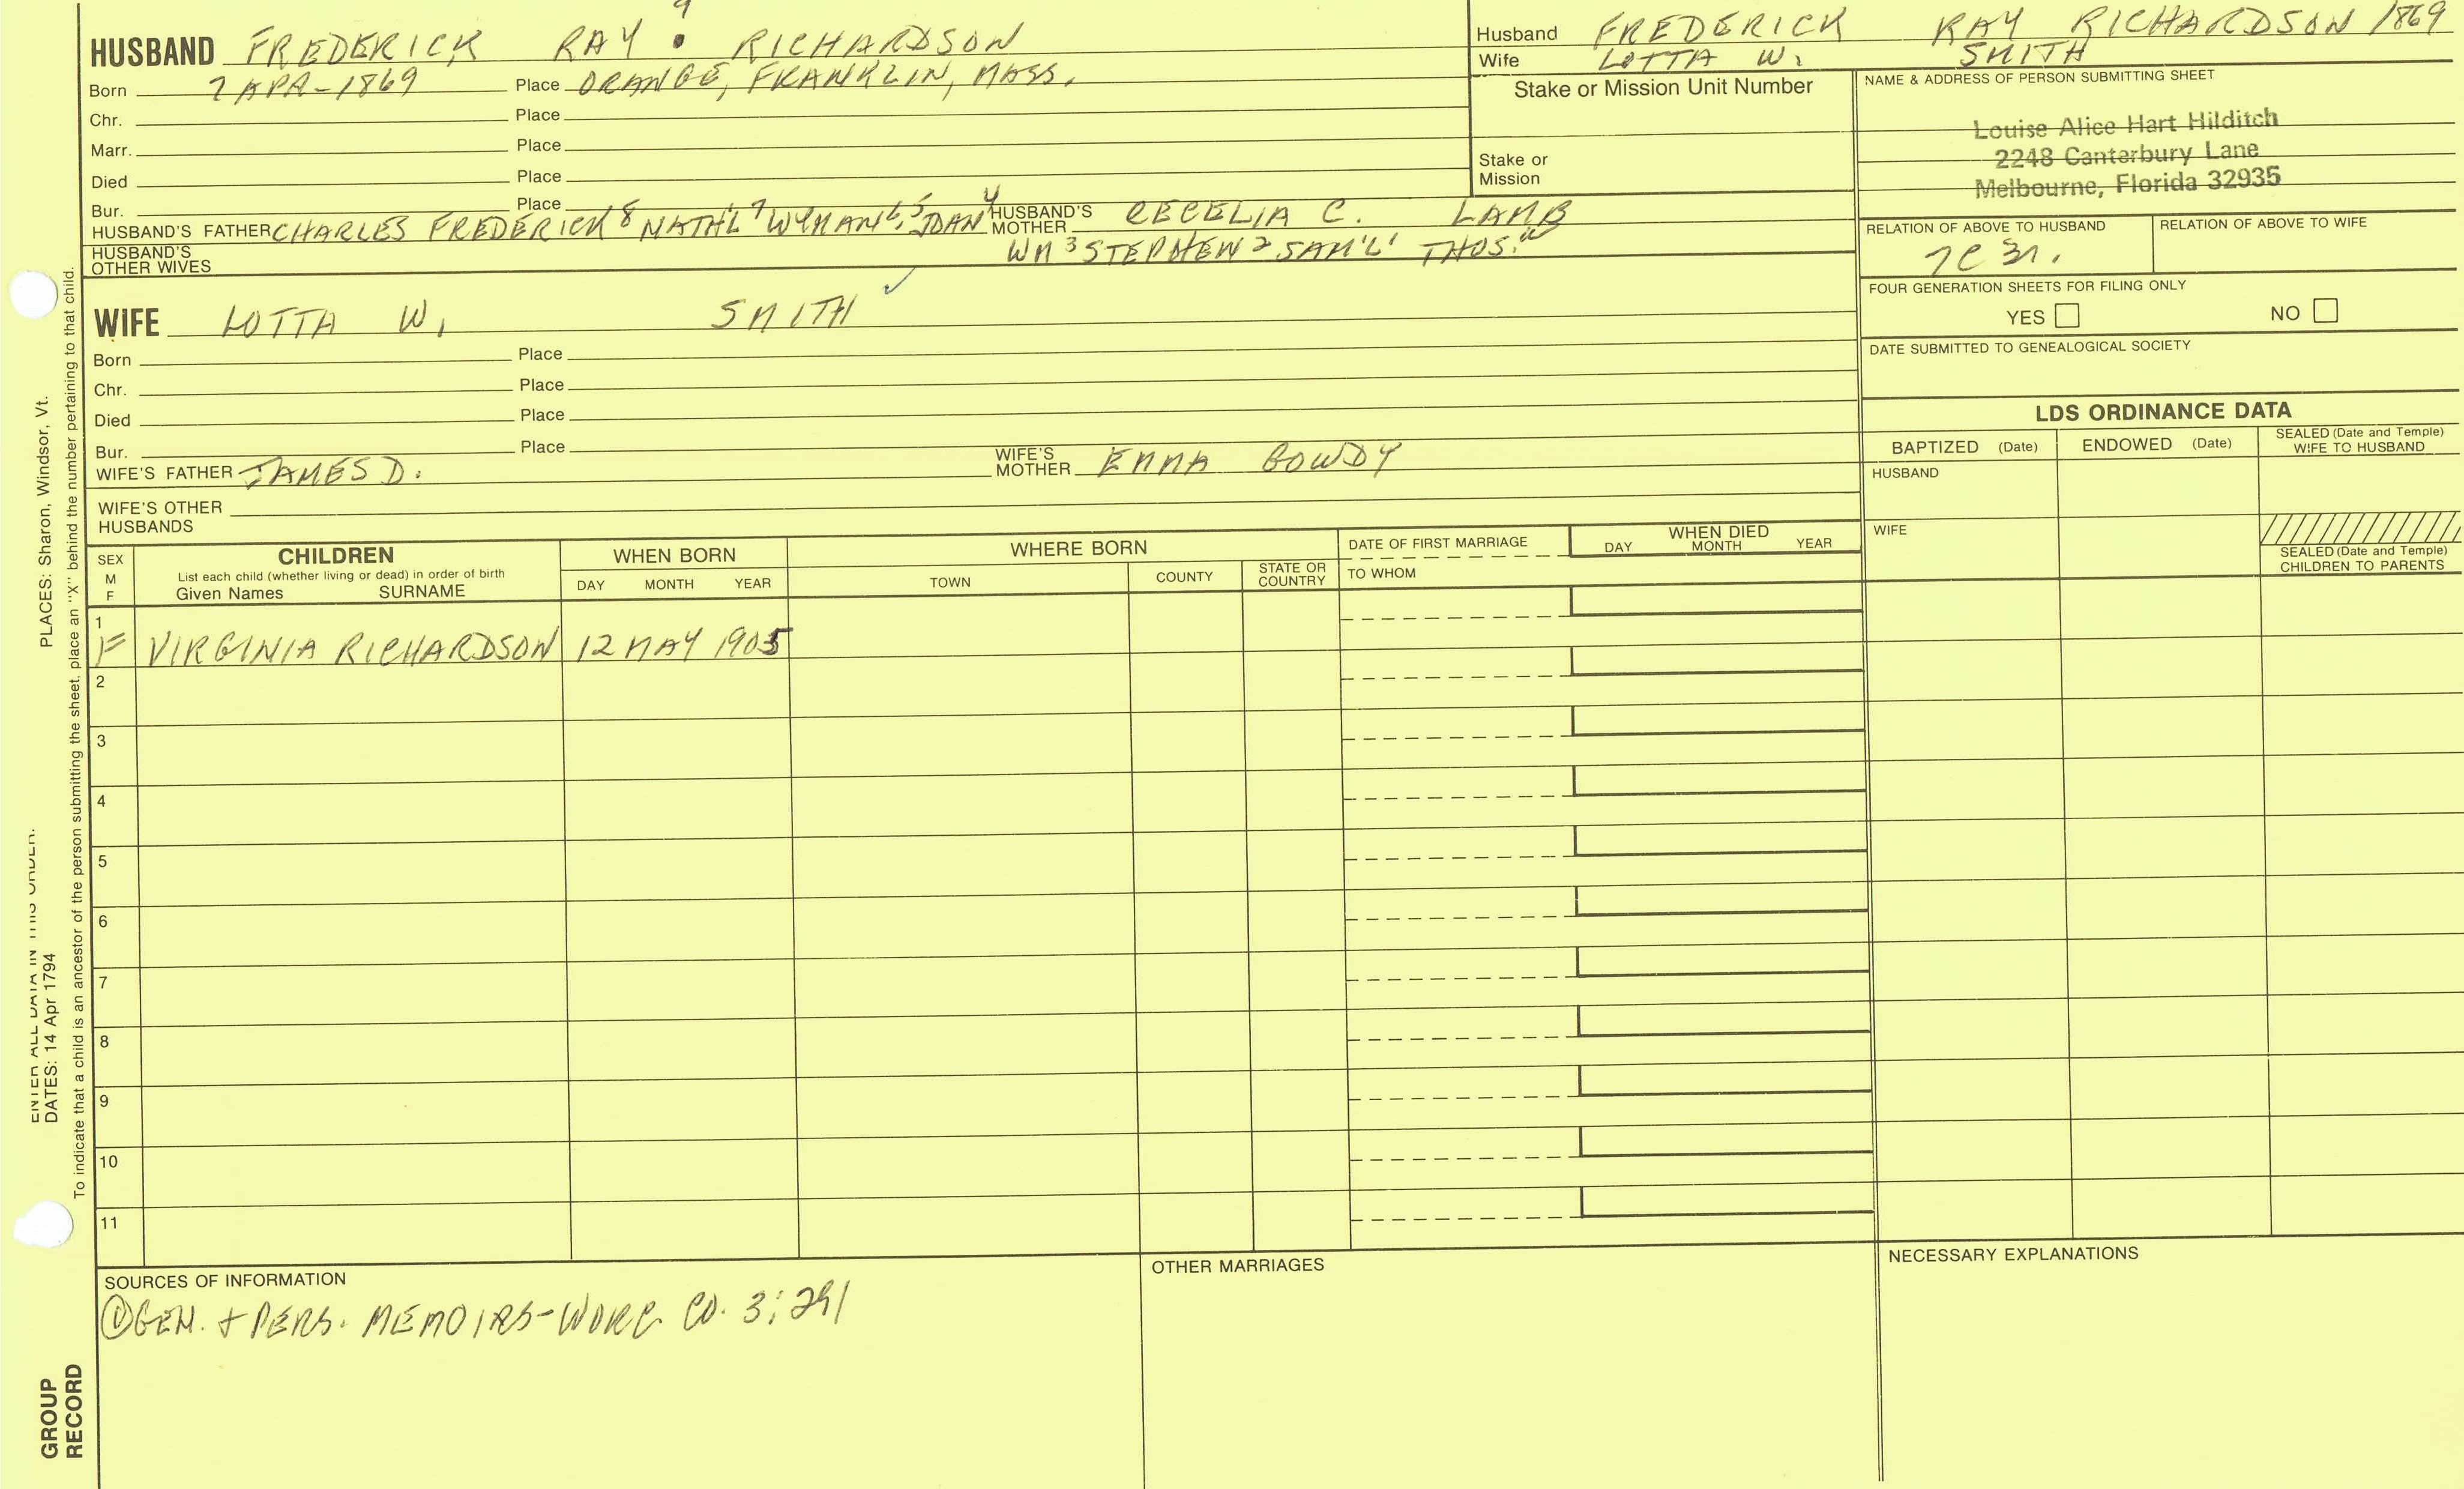 9
HUSBAND FREDERICK RAY RICHARDSON
Born 7 APR-1869 Place ORANGE, FRANKLIN, MASS.
Chr. Place
Marr. Place
Died Place
Bur. Place
HUSBAND'S FATHER CHARLES FREDERICK 8 NATH'L 7 WYMAN 6, 5 DAN 4 HUSBAND'S MOTHER CECELIA C. LAMB
HUSBAND'S OTHER WIVES WM 3 STEPHEN 2 SAM'L 1 THOS. A
Husband FREDERICK RAY RICHARDSON 1869
Wife LOTTA W. SMITH
Stake or Mission Unit Number
Stake or
Mission
NAME & ADDRESS OF PERSON SUBMITTING SHEET
Louise Alice Hart Hilditch
2248 Canterbury Lane
Melbourne, Florida 32935
RELATION OF ABOVE TO HUSBAND RELATION OF ABOVE TO WIFE
7C 3R.
FOUR GENERATION SHEETS FOR FILING ONLY
YES NO
DATE SUBMITTED TO GENEALOGICAL SOCIETY
WIFE LOTTA W. SMITH ✓
Born Place
Chr. Place
Died Place
Bur. Place
WIFE'S FATHER JAMES D. WIFE'S MOTHER EMMA GOWDY
WIFE'S OTHER
HUSBANDS
LDS ORDINANCE DATA
BAPTIZED (Date) ENDOWED (Date) SEALED (Date and Temple) WIFE TO HUSBAND
HUSBAND
WIFE
SEALED (Date and Temple)
CHILDREN TO PARENTS
SEX
M
F
CHILDREN
List each child (whether living or dead) in order of birth
Given Names SURNAME
WHEN BORN
DAY MONTH YEAR
WHERE BORN
TOWN COUNTY STATE OR COUNTRY
DATE OF FIRST MARRIAGE
TO WHOM
WHEN DIED
DAY MONTH YEAR
1
F VIRGINIA RICHARDSON 12 MAY 1905
2
3
4
5
6
7
8
9
10
11
SOURCES OF INFORMATION
① GEN. + PERS. MEMOIRS-WORC. CO. 3:291
OTHER MARRIAGES
NECESSARY EXPLANATIONS
ENTER ALL DATA IN THIS ORDER:
DATES: 14 Apr 1794
PLACES: Sharon, Windsor, Vt.
To indicate that a child is an ancestor of the person submitting the sheet, place an "X" behind the number pertaining to that child.
GROUP
RECORD